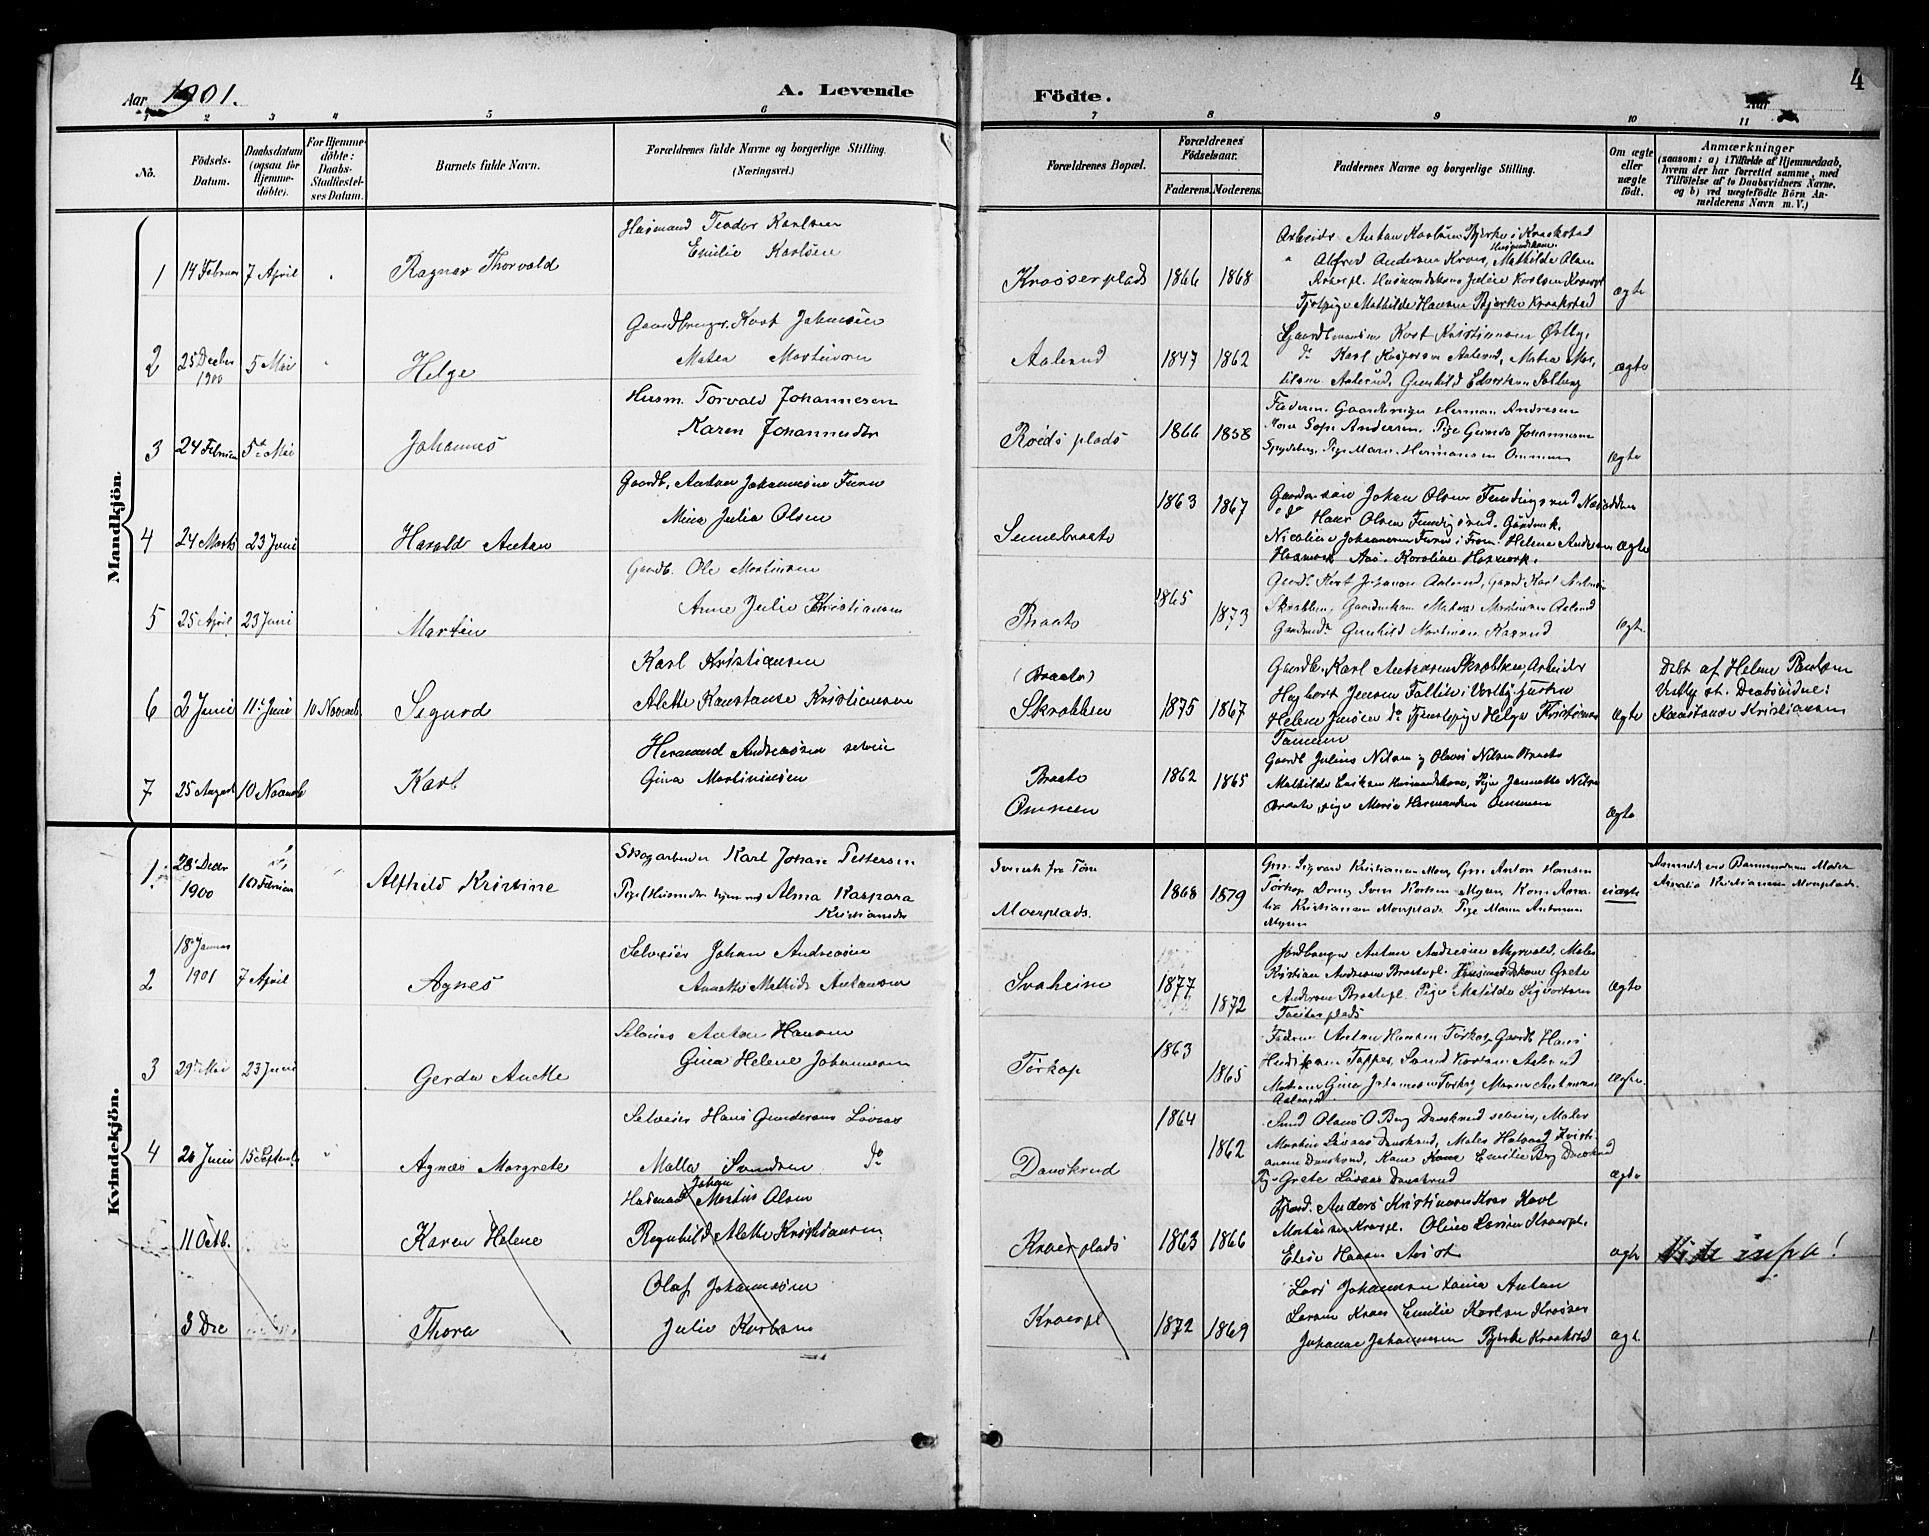 Aar 1901.
A. Levende
Födte.
Aar
4
1 2 3 4 5 6
7 8 9 10 11
No.
Födsels-Datum.
Daabsdatum (ogsaa for Hjemme-döbte).
For Hjemme-döbte: Daabs-Stadfæstel-ses Datum.
Barnets fulde Navn.
Forældrenes fulde Navne og borgerlige Stilling. (Næringsvei.)
Forældrenes Bopæl.
Forældrenes Födselsaar.
Faderens. Moderens.
Faddernes Navne og borgerlige Stilling.
Om ægte eller uægte födt.
Anmærkninger
(saasom: a) i Tilfælde af Hjemmedaab,
hvem der har forrettet samme, med
Tilföielse af to Daabsvidners Navne,
og b) ved uægtefödte Börn An-
melderens Navn m. V.)
Mandkjön.
1 14 Februar 7 April Ragnar Thorvald
Husmand Teodor Karlsen
Emilie Karlsen
Kraosserplads 1866 1868
Arbeids. Anton Karlsen Bjerke i Kraakstad
Husmandskone
" Alfred Andersen Kraas, Mathilde Olsen
Kraerpl. Husmandskone Juline Karlsen Kraerpl
Tjpige Mathilde Hansen Bjerke Kraakstad
ægte
2 25 Decbr 1900 5 Mai Helge
Gaardbruger Kart Johansen
Matea Martinsen
Aalerud 1847 1862
Gaardbmansön Kart Kristiansen Østby,
do Karl Kaspersen Aalerud, Matea Mar-
tilsen Aalerud, Gunhild Edvartsen Solberg
ægte
3 24 Februar 5te Mai Johannes
Husm. Torvald Johannesen
Karen Johannesdtr
Roeds plads 1866 1858
Faderen. Gaardbruger Herman Andresen
Kone Sofie Andersen. Pige Gunda Johannesen
Spydeberg, Pige Maren Hermansen Ommen
Ægte
4 24 Marts 23 Juni Harald Anton
Gaardb. Anton Johannesen Furu
Mina Julia Olsen
Sennebraate 1863 1867
Gaardmansön Johan Olsen Fundingsrud Næsodden
" do Hans Olsen Fundigsrud. Gaardmk.
Nicoline Johannesen Furu i Fron. Helene Andresen
Haxmark Aas. Karoline Haxmark.
ægte
5 25 April 23 Juni Martin
Gaardb. Ole Martinsen
Anne Julie Kristiansen
Braate 1865 1873
Gaardb. Kart Johansen Aalerud, Gaardb Karl Antonsen
Skrabben, Gaardmkone Matea Martinsen Aalerud
Gaardmdtr Gunhild Martinsen Kaxrud
Ægte
6 2 Juni 11te Juni 10 Novemb Sigurd
Karl Kristiansen
Alette Konstanse Kristiansen
(Braate)
Skrabben 1875 1867
Gaardb. Karl Antonsen Skrabben, Arbeider
Heybert Jensen Follin i Vestby, Hustru
Helene Jensen do Tjenestepige Helga Kristiansen
Tangen
Ægte
Döbt af Helene Paulsen
Vestby st. Daabsvidne:
Konstanse Kristiansen
7 25 August 10 Novemb Karl
Hermand Andreasen selveier
Gina Martiniusen
Braate
Ommen 1862 1865
Gaardb Julius Nilsen og Olaves Nilsen Braate
Mathilde Eriksen Husmandskone, Pige Jannette Nilsen
Braate, pige Marie Hermansen Ommen
Ægte
Kvindekjön.
1. 28 Decbr 1900 10 Februar Alfhild Kristine
Skogarbeider Karl Johan Pettersen
Pige Husmdtr hjemme Alma Kaspara
Kristiansdtr
Svensk fra Töm
Moerplads. 1868 1879
Gm. Sigvard Kristiansen Moer, Gm Anton Hansen
Törkop, Dreng Sven Karlsen Myren, Kone Ama-
lie Kristiansen Moerplads Pige Maren Antonsen
Myren
uægte
Anmeldt ved Barnemoderens Moder
Amalia Kristiansen Moerplads
2 18 Januar 1901 7 April Agnes
Selveier Johan Andreasen
Annette Mathilde Antonsen
Svaheim 1877 1872
Jordbruger Anton Andreasen Myrvold, Maler
Kristian Andresen Braatepl. Husmandskone Grete
Andersen Braatepl. Pige Matilde Sigvartsen
Tæiterplads
Ægte
3 29 Mai 23 Juni Gerda Anette
Selveier Anton Hansen
Gina Helene Johannesen
Törkop 1863 1865
Faderen Anton Hansen Törkop, Gaardb Hans
Hendriksen Topper, Svend Karlsen Aalerud
Moderen Gina Johannesen Törkop Maren Antonsen
Aalerud
Ægte
4 20 Juni 15 Septemb " Agnes Margrete
Selveier Hans Gundersen Lövaas
Malla Svendsen do
Danskrud 1864 1862
Smed Olaus O Berg Danskrud selveier, Maler
Martin Lövaas Danskrud, Maler Halvard Kristi-
ansen Danskrud, Kone Emilie Berg Danskrud
Pige Grete Lövaas Danskrud
Ægte
11 Octb. Karen Helene
Johan
Husmand Martin Olsen
Regnhild Alette Kristiansen
Kraerplads 1863 1866
Gaard. Anders Kristiansen Kraer Karl
Martinsen Kraerpl. Oline Larsen Kraerpl.
Elise Hansen Aas st
ægte
Vide infra!
3 Dec Thora
Olaf Johannesen
Julie Karlsen
Kraerpl 1872 1869
Lars Johannsen Anton
Larsen Kraer Emilie Karlsen Kraser
Johanne Johannesen Bjerke Kraakstad
ægte